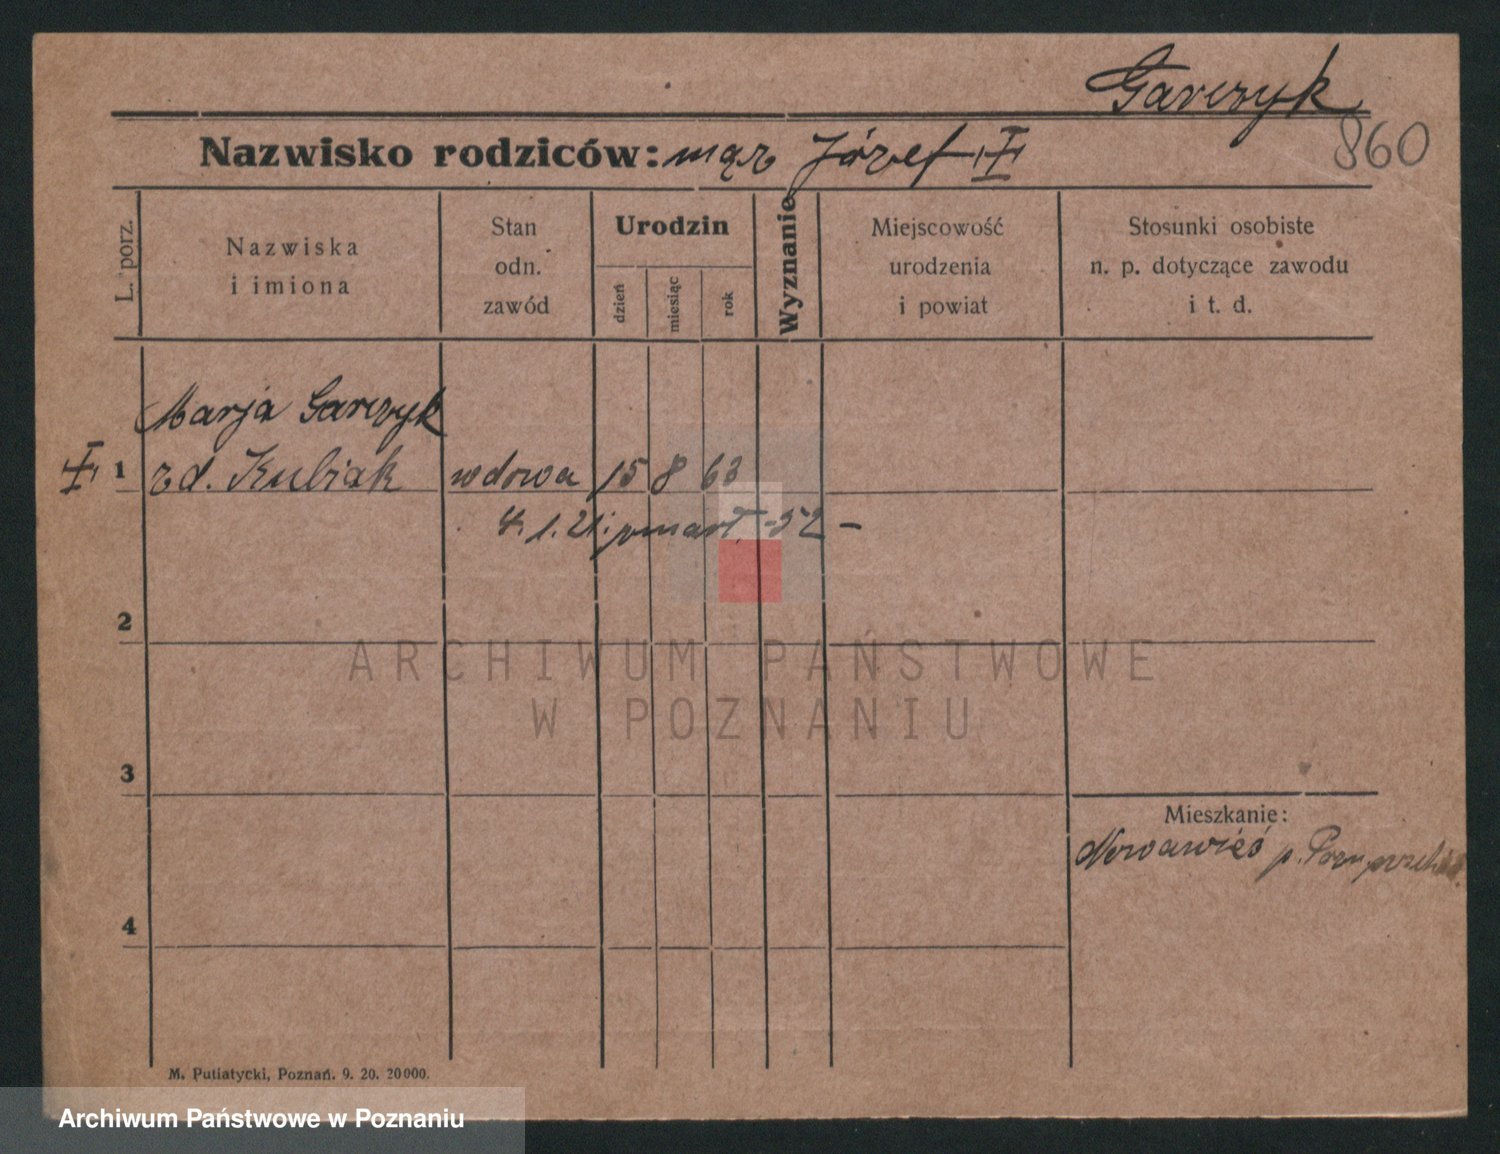 Garczyk
860
Nazwisko rodziców: mąż Józef
L. porz.
Nazwiska
i imiona
Stan
odn.
zawód
Urodzin
dzień
miesiąc
rok
Wyznanie
Miejscowość
urodzenia
i powiat
Stosunki osobiste
n. p. dotyczące zawodu
i t. d.
Marja Garczyk
1 zd. Kubiak wdowa 15 8 63
4. 1. 21.
2
ARCHIWUM PAŃSTWOWE
W POZNANIU
3
Mieszkanie:
Nowawieś p.
4
M. Putiatycki, Poznań. 9. 20. 20000.
Archiwum Państwowe w Poznaniu